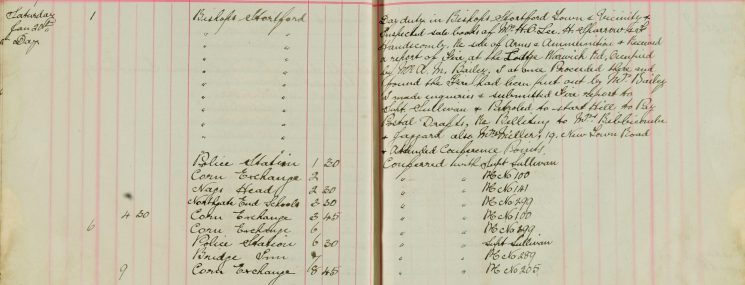 Saturday 1 Bishops Stortford Day duty in Bishops Stortford Town & Vicinity &
Jan 20th " Inspected sale books of Mr H.C. Lee, H. Sparrow &
Day " Handscombe Re sale of Arms & Ammunition & Received
" a report of Fire at the Lodge Warwick Rd, Occupied
" by Mr A. M. Bailey, I at once Proceeded there and
" found the Fire had been put out by Mr Bailey
" I made enquiries & submitted Fire report to
" Supt Sullivan & Patroled to start Hill to Pay
" Postal Drafts, Re Billeting to Mrs
" & Jaggard also Mrs Miller, 19, New Town Road
" & Attended Conference Points
Police Station 1 30 Conferred with Supt Sullivan
Corn Exchange 2 " PC No 100
Nags Head 2 30 " PC No 141
Northgate End Schools 3 30 " PC No 299
4 30 Corn Exchange 3 45 " PC No 100
6 Corn Exchange 6 " PC No 299
Police Station 6 30 " Supt Sullivan
Bridge Inn 7 " PC No 289
9 Corn Exchange 8 45 " PC No 205